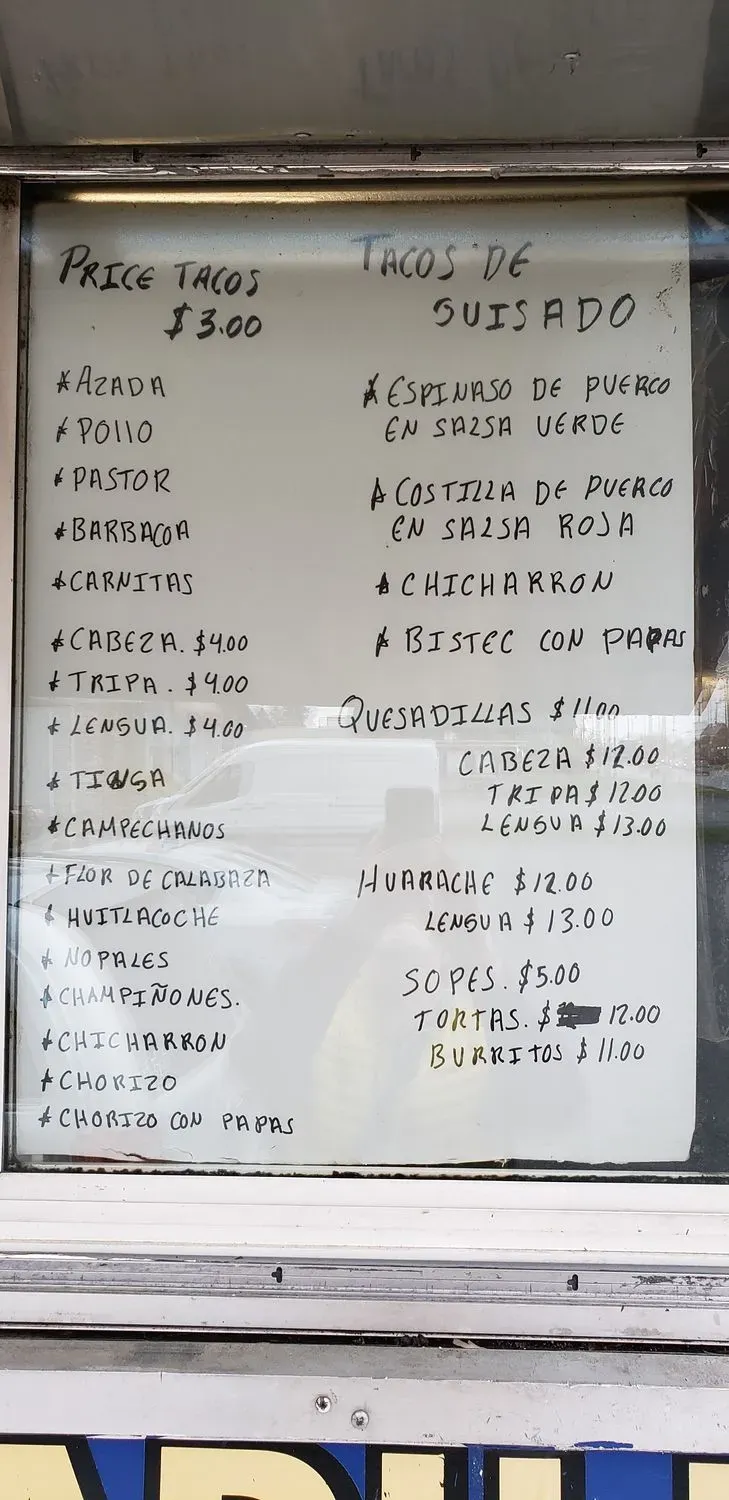 PRICE TACOS
$3.00
*AZADA
*POllO
*PASTOR
*BARBACOA
*CARNITAS
*CABEZA. $4.00
*TRIPA. $4.00
*LENGUA. $4.00
*TINGA
*CAMPECHANOS
*FLOR DE CALABAZA
*HUITLACOCHE
*NOPALES
*CHAMPIÑONES.
*CHICHARRON
*CHORIZO
*CHORIZO CON PAPAS
TACOS DE
GUISADO
*ESPINASO DE PUERCO
EN SALSA VERDE
*COSTILLA DE PUERCO
EN SALSA ROJA
*CHICHARRON
*BISTEC CON PAPAS
QUESADILLAS $11.00
CABEZA $12.00
TRIPA $12.00
LENGUA $13.00
HUARACHE $12.00
LENGUA $13.00
SOPES. $5.00
TORTAS. $ 12.00
BURRITOS $11.00